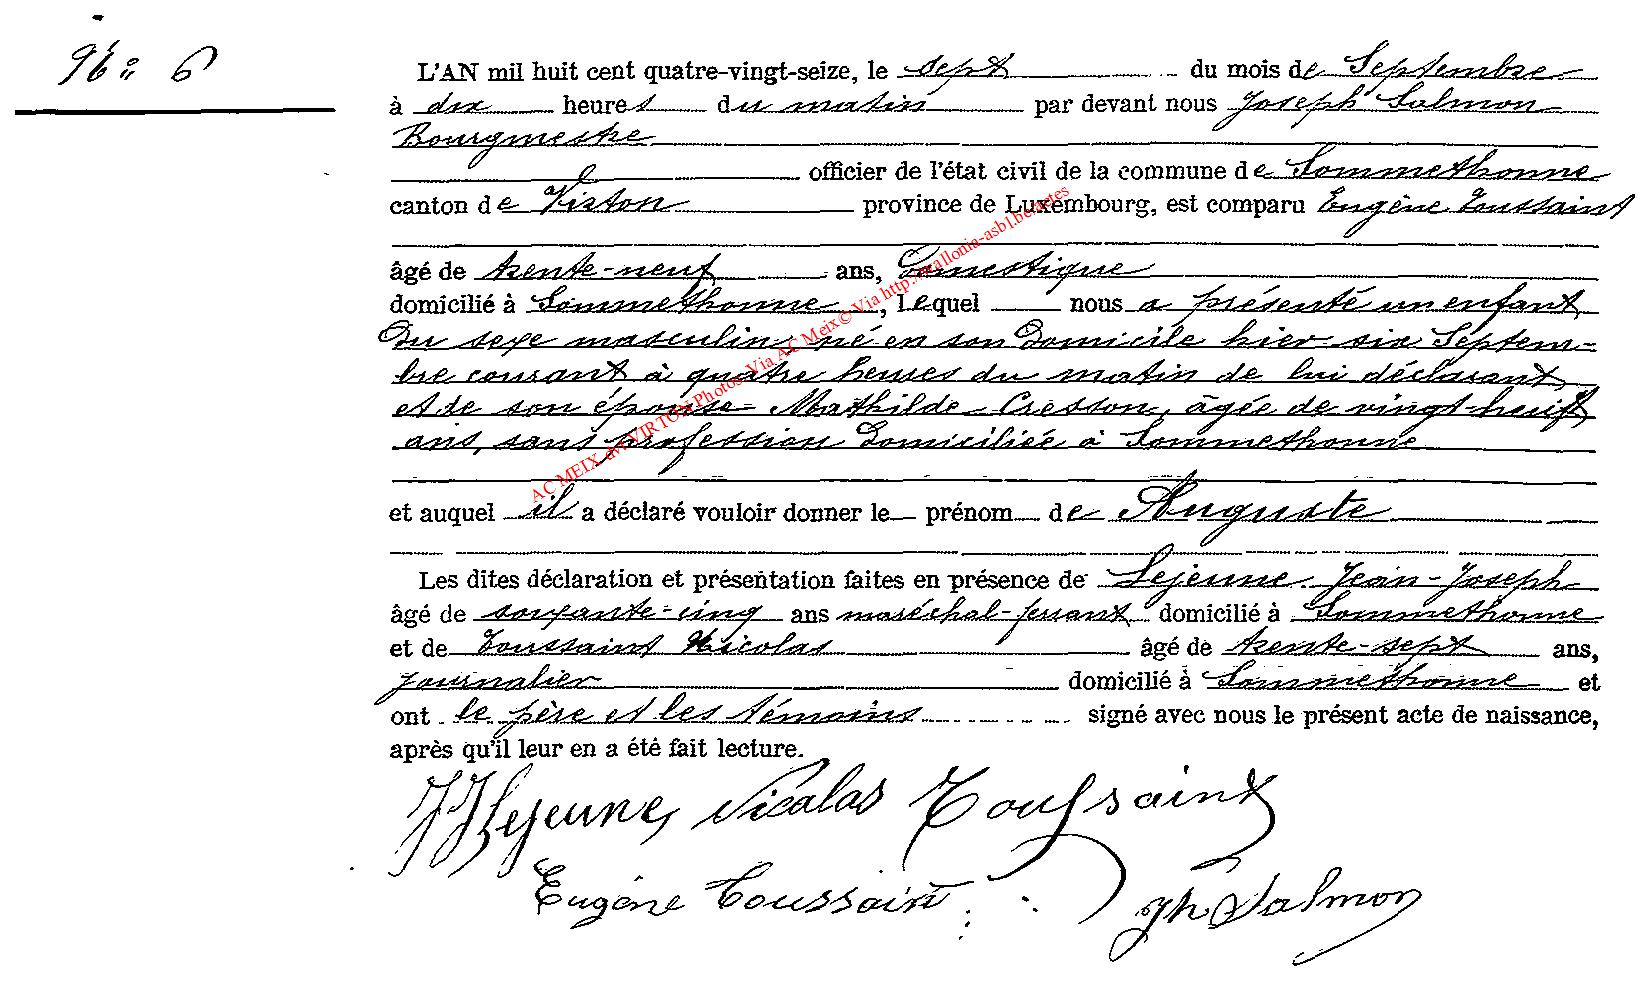 N°: 6
L'AN mil huit cent quatre-vingt-seize, le sept du mois de Septembre
à dix heures du matin par devant nous Joseph Salmon
Bourgmestre
officier de l'état civil de la commune de Sommethonne
canton de Virton province de Luxembourg, est comparu Eugène Toussaint
âgé de trente-neuf ans, Domestique
domicilié à Sommethonne, lequel nous a présenté un enfant
Du sexe masculin, né en son Domicile hier six Septem-
bre courant à quatre heures du matin de lui déclarant
et de son épouse Mathilde Cresson, âgée de vingt-huit
ans, sans profession Domiciliée à Sommethonne
et auquel il a déclaré vouloir donner le prénom de Auguste
Les dites déclaration et présentation faites en présence de Lejeune Jean-Joseph
âgé de soixante-cinq ans maréchal-ferrant domicilié à Sommethonne
et de Toussaint Nicolas âgé de trente-sept ans,
journalier domicilié à Sommethonne et
ont le père et les témoins signé avec nous le présent acte de naissance,
après qu'il leur en a été fait lecture.
JJ Lejeune, Nicolas Toussaint
Eugène Toussaint Jh Salmon
AC MEIX dvt VIRTON Photos Via AC Meix© Via http://wallonia-asbl.be/actes